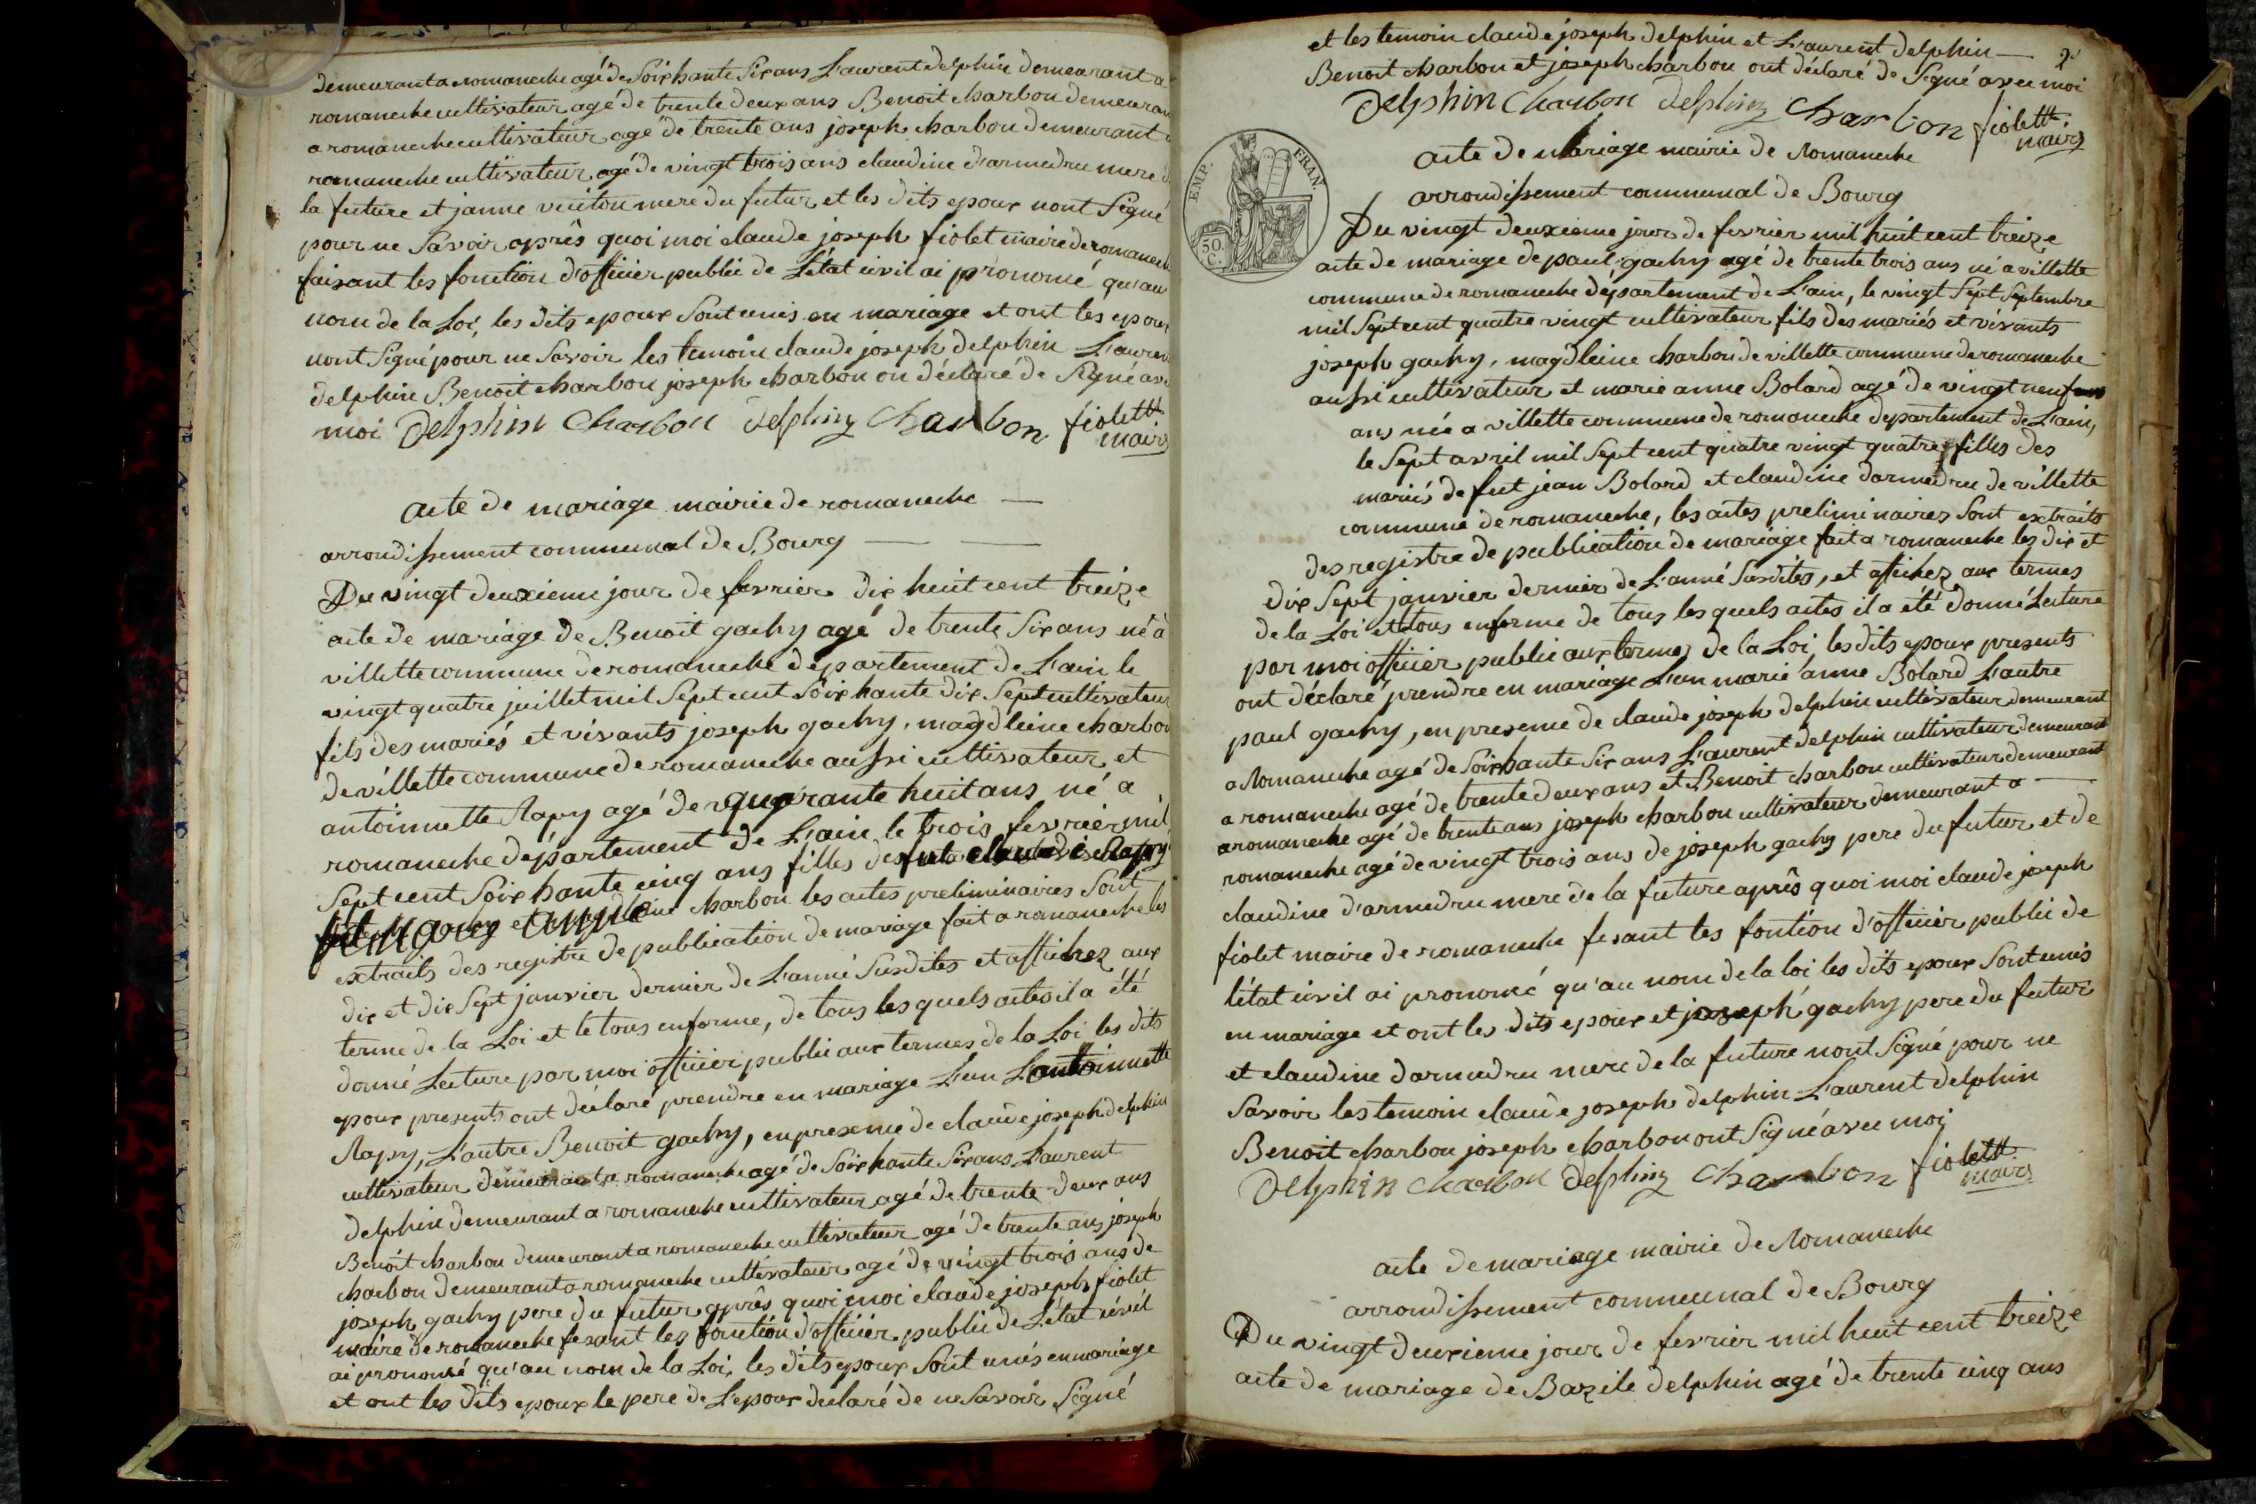 demeurant a romaneche agé de Soixhante Six ans Laurent delphin demeurant a
romaneche cultivateur agé de trente deux ans Benoit charbon demeurant
a romaneche cultivateur agé de trente ans joseph charbon demeurant a
romaneche cultivateur agé de vingt trois ans claudine d'armedru mere de
la future et janne veuiton mere du futur et les dits epoux nont Signé
pour ne Savoir après quoi moi claude joseph fiolet maire de romaneche
faisant les fonction d'officier public de L'état civil ai pronomé qu'au
nom de la Loi, les dits epoux Sont unis en mariage et ont les epoux
nont Signé pour ne Savoir les temoin claude joseph delphin Laurent
delphin Benoit charbon joseph charbon on déclaré de Signé avec
moi Delphin Charbon delphin Charbon fiolett
maire
acte de mariage mairie de romaneche
arrondissement communal de Bourg
Du vingt deuxieme jour de fevrier dix huit cent treize
acte de mariage de Benoit gachy agé de trente Six ans né à
villette commune de romaneche departement de L'ain le
vingt quatre juillet mil Sept cent Soixhante dix Sept cultivateur
fils des mariés et vivants joseph gachy, magdleine charbon
de villette commune de romaneche aussi cultivateur et
antoinette Rapy agé de quarante huit ans né a
romaneche département de L'ain le trois fevrier mil
Sept cent Soixhante cinq ans filles des fut claude Rapy
fut marie anne charbon les actes preliminaires Sont
extraits des registre de publication de mariage fait a romaneche les
dix et dix Sept janvier dernier de L'anné Susdites et affichez aux
terme de la Loi et le tous enforme, de tous les quels actes il a été
donné Lecture par moi officier public aux termes de la Loi les dits
epoux presents ont déclaré prendre en mariage L'un L'antoinnette
Rapy, L'autre Benoit gachy, en presence de claude joseph delphin
cultivateur demeurant a romaneche agé de Soixhante Six ans Laurent
delphin demeurant a romaneche cultivateur agé de trente deux ans
Benoit charbon demeurant a romaneche cultivateur agé de trente ans joseph
charbon demeurant a romaneche cultivateur agé de vingt trois ans de
joseph gachy pere du futur après quoi moi claude joseph fiolet
maire de romaneche fesant les fonction d'officier public de L'état civil
ai pronomé qu'au nom de la Loi, les dits epoux Sont unis en mariage
et ont les dits epoux le pere de L'epoux declaré de ne Savoir Signé
et les temoin claude joseph delphin et Laurent delphin
Benoit charbon et joseph charbon ont déclaré de Signé avec moi
Delphin Charbon delphin Charbon fiolett
maire
EMP. FRAN.
50.
C.
acte de mariage mairie de Romaneche
arrondissement communal de Bourg
Du vingt deuxieme jour de fevrier mil huit cent treize
acte de mariage de paul gachy agé de trente trois ans né a villette
commune de romaneche département de L'ain, le vingt Sept Septembre
mil Sept cent quatre vingt cultivateur fils des mariés et vivants
joseph gachy, magdleine charbon de villette commune de romaneche
aussi cultivateur et marie anne Bolard agé de vingt neuf
ans née a villette commune de romaneche departement de L'ain,
le Sept avril mil Sept cent quatre vingt quatre filles des
mariés de feut jean Bolard et claudine darmedru de villette
commune de romaneche, les actes preliminaires Sont extraits
des registre de publication de mariage fait a romaneche les dix et
dix Sept janvier dernier de L'anné Susdites, et affichez aux termes
de la Loi et tous enforme de tous les quels actes il a été donné Lecture
par moi officier public aux termes de la Loi, les dits epoux presents
ont déclaré prendre en mariage L'un marie anne Bolard L'autre
paul gachy, en presence de claude joseph delphin cultivateur demeurant
a Romaneche agé de Soixhante Six ans Laurent delphin cultivateur demeurant
a romaneche agé de trente deux ans et Benoit charbon cultivateur demeurant
a romaneche agé de trente ans joseph charbon cultivateur demeurant a
romaneche agé de vingt trois ans de joseph gachy pere du futur et de
claudine d'armedru mere de la future après quoi moi claude joseph
fiolet maire de romaneche fesant les fontion d'officier public de
l'état civil ai pronomé qu'au nom de la loi les dits epoux Sont unis
en mariage et ont les dits epoux et joseph gachy pere du futur
et claudine darmedru mere de la future nont Signé pour ne
Savoir les temoin claude joseph delphin Laurent delphin
Benoit charbon joseph charbon ont Signé avec moi
Delphin Charbon delphin Charbon fiolett
maire
acte de mariage mairie de Romaneche
arrondissement communal de Bourg
Du vingt deuxieme jour de fevrier mil huit cent treize
acte de mariage de Bazile delphin agé de trente cinq ans